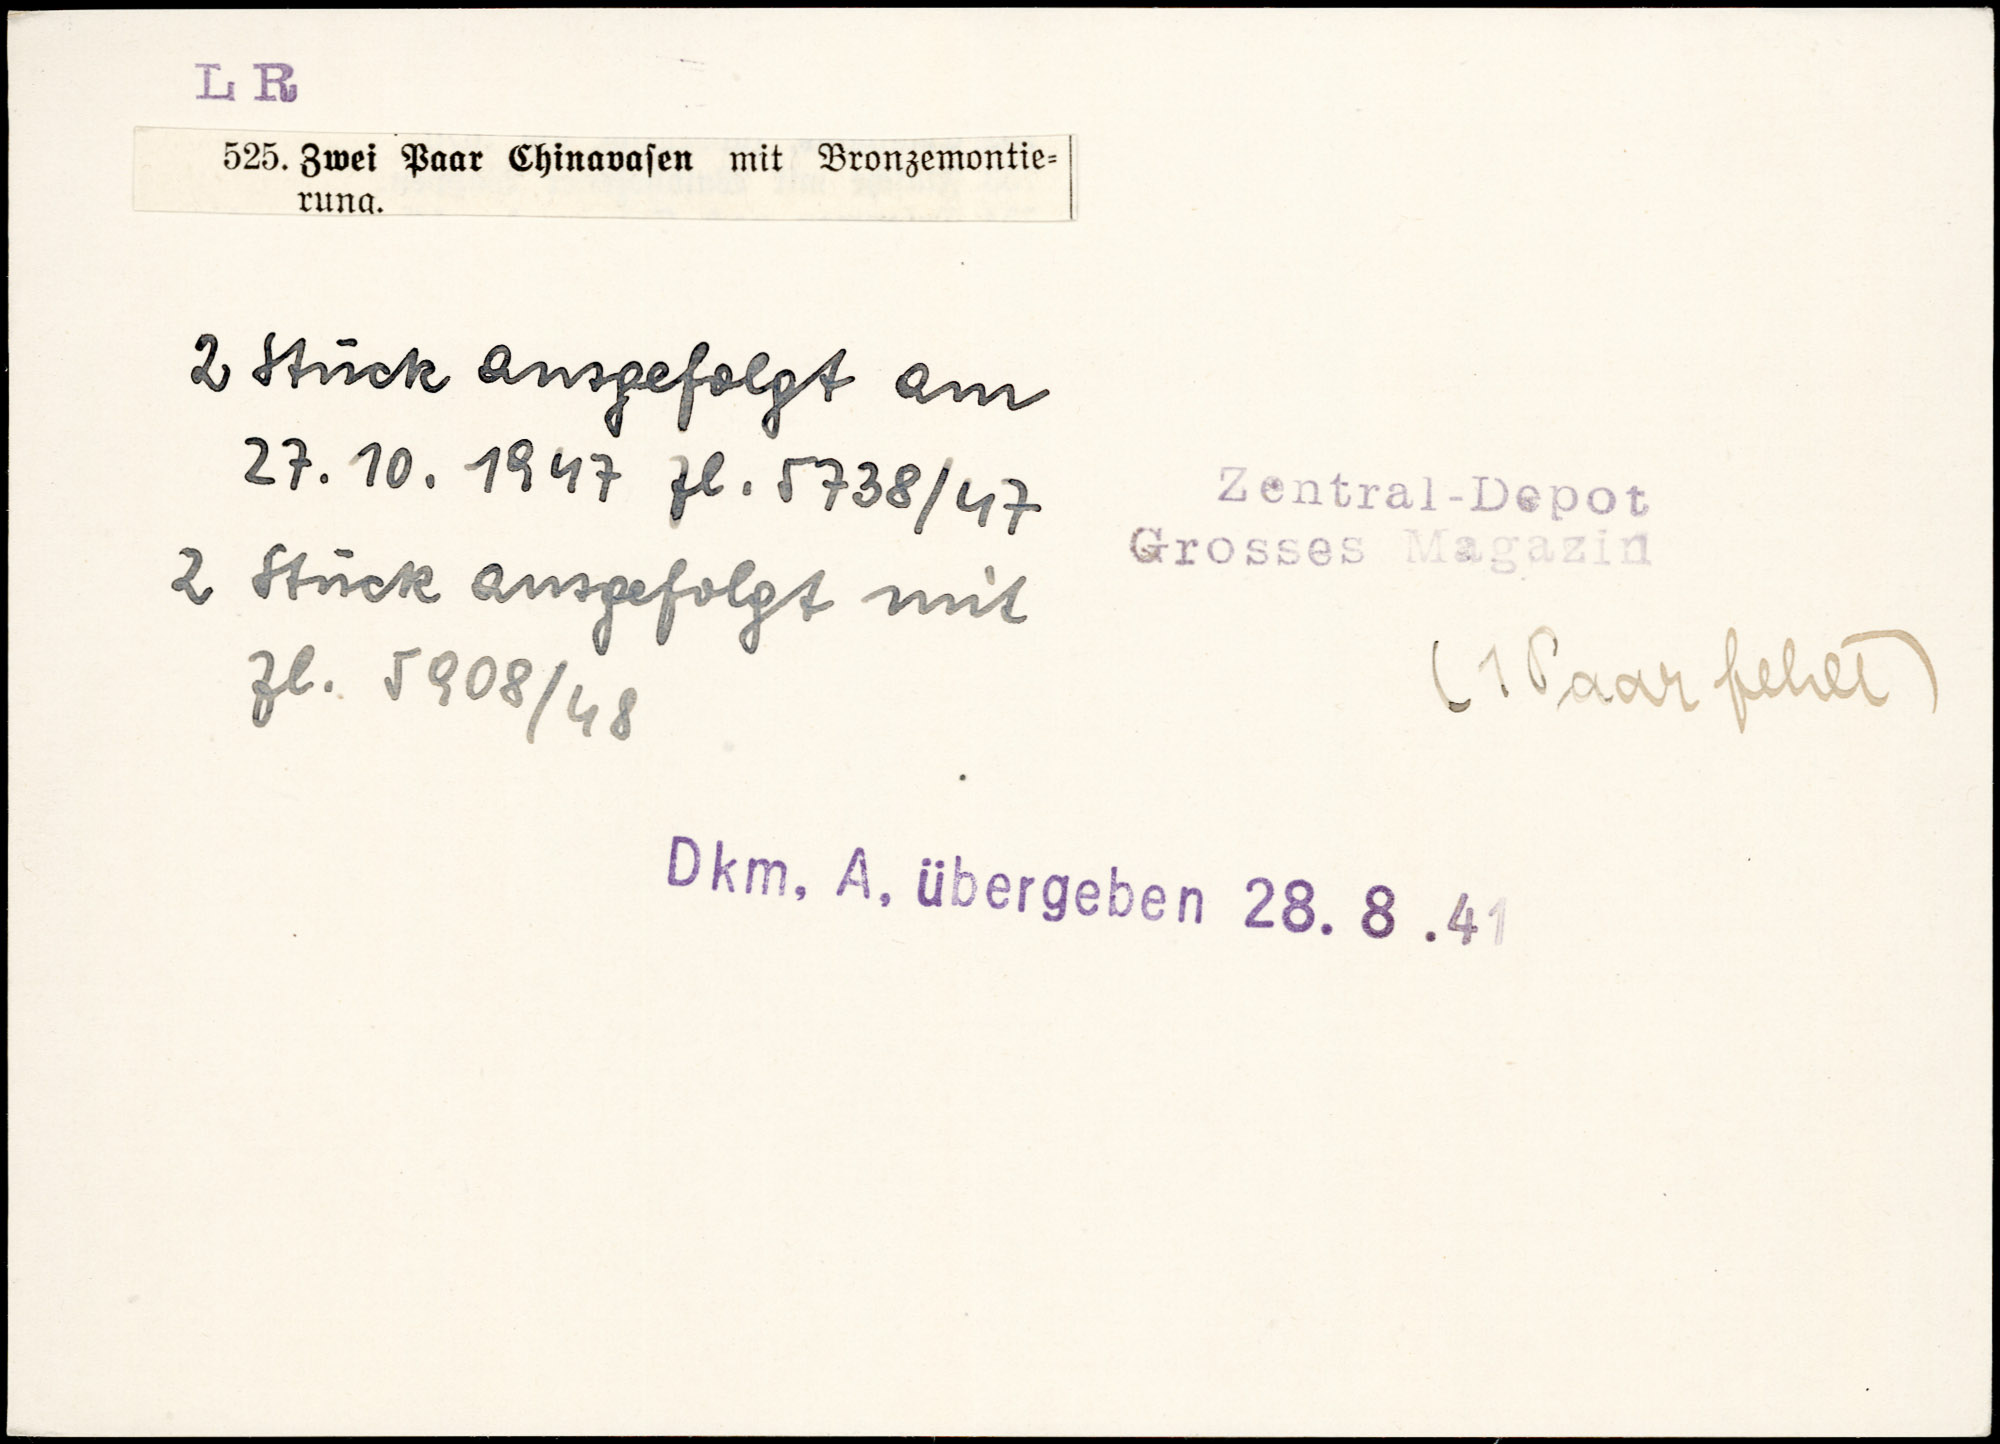 L R
525. Zwei Paar Chinavaſen mit Bronzemontie=
rung.
2 Stück ausgefolgt am
27. 10. 1947 Zl. 5738/47
2 Stück ausgefolgt mit
Zl. 5908/48
Zentral-Depot
Grosses Magazin
(1 Paar fehlt)
Dkm. A. übergeben 28. 8 .41